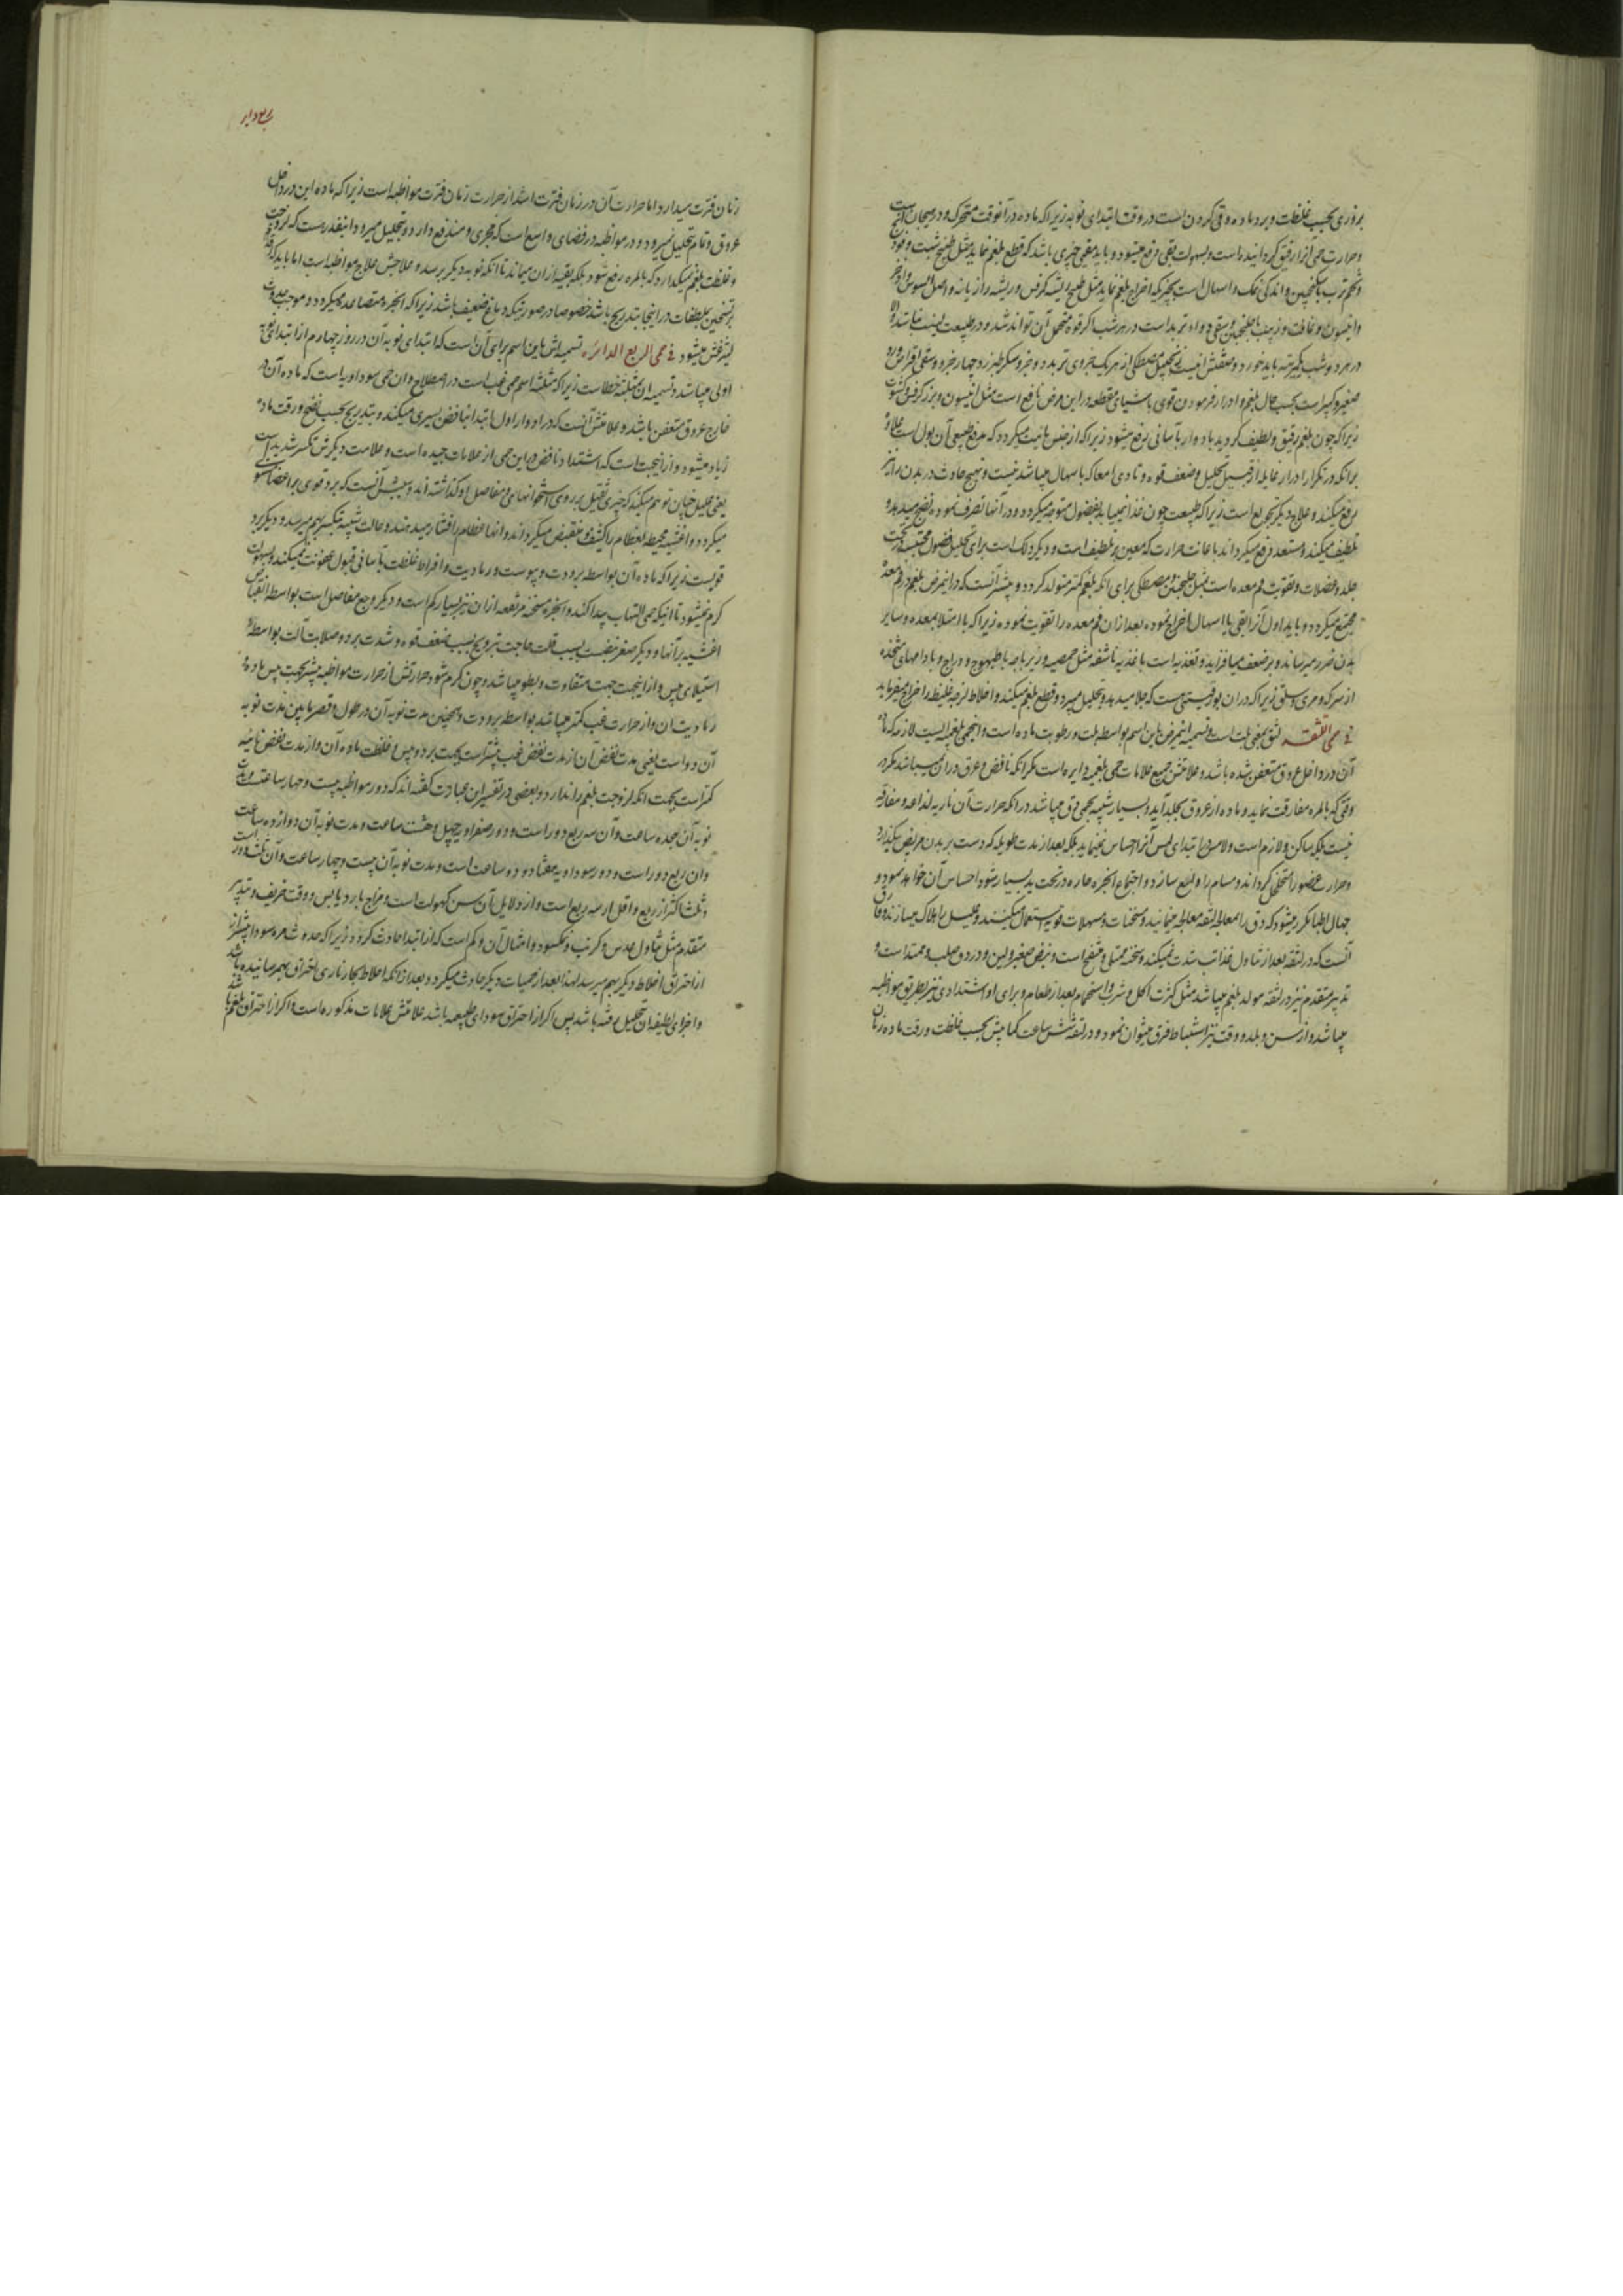 بروزی بحسب غلظت و برد ماده و قی کردن است در وقت ابتدای نوبه زیرا که ماده در آنوقت متحرک و در هیجان است
و حرارت حمی آنرا رقیق گردانیده است و بسهولت بقی دفع میشود و باید مقیی چیزی باشد که قطع بلغم نماید مثل طبیخ شبت و فجل
و تخم ترب با سکنجبین و اندکی نمک و اسهال است بچیزیکه اخراج بلغم نماید مثل طبیخ ریشه کرفس و ریشه رازیانه و اصل السوس
و انیسون و غافت و زبیب با گلنجبین و سقی دواء تربد است در هر شب اگر قوه متحمل آن تواند شد و در طبیعت
در هر دو شب یکمرتبه باید خورد و صفتش اینست زنجبیل مصطکی از هر یک جزوی تربد دو جزو سکر طبرزد چهار جزو و سقی اقراص ورد
صغیر و کبیر است بحسب حال بلغم و ادرار فرمودن قوی باشیای مقطعه در این مرض نافع است مثل انیسون و بزر کرفس
زیرا که چون بلغم رقیق و لطیف گردید بادرار بآسانی دفع میشود زیرا که از جنس مائیت میگردد که مدفع طبیعی آن بول است علاوه
بر آنکه در تکرار ادرار غایله از قبیل تحلیل و ضعف قوه و تاذی امعا که باسهال میباشد نیست و تهیج حادث در بدن را نیز
رفع میکند و علاج دیگر تجویع است زیرا که طبیعت چون غذا نمییابد بفضول متوجه میگردد و در آنها تصرف نموده نضج میدهد و
تلطیف میکند و مستعد دفع میگرداند باعانت حرارت که معین بر تلطیف است و دیگر دلک است برای تحلیل فضول محتبسه در تحت
جلد و عضلات و تقویت فم معده است بمثل گلنجبین و مصطکی برای آنکه بلغم کمتر متولد گردد و بیشتر آنست که در اینمرض بلغم در فم معده
مجتمع میگردد و باید اول آنرا بقی یا اسهال اخراج نموده بعد از آن فم معده را تقویت نمود زیرا که با امتلا بمعده و سایر
بدن ضرر میرساند و بر ضعف میافزاید و تغذیه است باغذیه ناشفه مثل حمصیه و زیرباجه با طیهوج و دراج و بادامهای متخذه
از سرکه و مری و سلق زیرا که در آن بورقیتی هست که جلا میدهد و تحلیل میبرد و قطع بلغم میکند و اخلاط لزجه غلیظه را اخراج میفرماید
فی حمی اللثقه لثق بمعنی بلت است و تسمیه اینمرض باین اسم بواسطه بلت و رطوبت ماده است و اینحمی بلغمیه ایست لازمه که ماده
آن در داخل عروق متعفن شده باشد و علامتش جمیع علامات حمی بلغمیه دایره است مگر آنکه نافض و عرق در آن نمیباشد مگر در
وقتی که بالمره مفارقت نماید و ماده از عروق بجلد آید و بسیار شبیه بحمی دق میباشد در آنکه حرارت آن ناریه لذاعه و مفارقه
نیست بلکه ساکن و لازم است و لامس در ابتدای لمس آنرا احساس نمینماید بلکه بعد از مدت طویله که دست بر بدن مریض بگذارد
و حرارت عضو را متخلخل گرداند و مسام را وسیع سازد و اجتماع ابخره حاره در تحت ید بسیار شود احساس آن خواهد نمود و
جهال اطبا مکرر میشود که دق را معالجه لثقه معالجه مینمایند و مسخنات و مسهلات قویه استعمال میکنند و علیل را هلاک میسازند و فارق
آنست که در لثقه بعد از تناول غذا تب شدت نمیکند و سحنه ممتلی و منتفخ است و نبض صغیر و لین و در دق صلب و ممتد است و
تدبیر متقدم نیز در لثقه مولد بلغم میباشد مثل کثرت اکل و شرب و استحمام بعد از طعام و برای او اشتدادی نیز بطریق مواظبه
میباشد و از سن و بلد و وقت نیز استنباط فرق میتوان نمود و در لثقه شش ساعت کما بیش بحسب غلظت و رقت ماده زمان
زمان فترت میدارد اما حرارت آن در زمان فترت اشد از حرارت زمان فترت مواظبه است زیرا که ماده این در داخل
عروق و تمام تحلیل نمیرود و در مواظبه در فضای واسع است که مجری و مندفع دارد و بتحلیل میرود و اینقدر هست که لزوجت
و غلظت بلغم نمیگذارد که بالمره رفع شود بلکه بقیه از آن میماند تا آنکه نوبه دیگر برسد و علاجش علاج مواظبه است اما باید که
تسخین بملطفات در اینجا بتدریج باشد خصوصا در صورتیکه دماغ ضعیف باشد زیرا که ابخره متصاعده میگردد و موجب حدوث
لیثرغس میشود فی حمی الربع الدائره تسمیه اش باین اسم برای آن است که ابتدای نوبه آن در روز چهارم از ابتدای نوبه
اولی میباشد و تسمیه آن بمثلثه خطاست زیرا که مثلثه اسم حمی غب است در اصطلاح و آن حمی سوداویه است که ماده آن در
خارج عروق متعفن باشد و علامتش آنست که در ادوار اول با ابتدا نافض یسیری میکند و بتدریج بحسب نضج و رقت ماده
زیاد میشود و از اینجهت است که اشتداد نافض در این حمی از علامات جیده است و علامت دیگرش تکسر شدید است
یعنی علیل چنان توهم میکند که چیزی ثقیل بر روی استخوانهای و مفاصل او گذاشته اند و سببش آنست که برد قوی بر اعضا مستولی
میگردد و اغشیه محیطه بعظام را کثیف و منقبض میگرداند و آنها عظام را فشار میدهند و حالت شبیه بتکسیر بهم میرسد و دیگر برد
قویست زیرا که ماده آن بواسطه برودت و یبوست و رمادیت و افراط غلظت بآسانی قبول عفونت نمیکند و بسهولت
گرم نمیشود تا آنکه حمی التهاب پیدا کند و ابخره مسخنه مرتفعه از آن نیز بسیار کم است و دیگر وجع مفاصل است بواسطه انقباض
اغشیه بر آنها و دیگر صغر نبض است بسبب قلت حاجت بترویح بسبب ضعف قوه و شدت برد و صلابت آلت بواسطه
استیلای یبس و از اینجهت متفاوت و بطو میباشد و چون گرم شود حرارتش از حرارت مواظبه بیشتر بجهت یبس ماده
رمادیت آن و از حرارت غب کمتر میباشد بواسطه برودت و همچنین مدت نوبه آن در طول و قصر مابین مدت نوبه
آن دو است یعنی مدت تعفن آن از مدت تعفن غب بیشتر است بجهت برد و یبس و غلظت ماده آن و از مدت تعفن نائبه
کمتر است بجهت آنکه لزوجت بلغم را ندارد و بعضی در تفسیر این عبارت گفته اند که دور مواظبه بیست و چهار ساعت و مدت
نوبه آن هجده ساعت و آن سه ربع دور است و دور صفراویه چهل و هشت ساعت و مدت نوبه آن دوازده ساعت
و آن ربع دور است و دور سوداویه هفتاد و دو ساعت است و مدت نوبه آن بیست و چهار ساعت و آن ثلث دور
و ثلث اکثر از ربع و اقل از سه ربع است و از دلایل آن سن کهولت است و مزاج بارد یابس و وقت خریف و تدبیر
متقدم مثل تناول عدس و کرنب و نمکسود و امثال آن و کم است که از ابتدا حادث گردد زیرا که حدوث مره سودا بیشتر از
از احتراق اخلاط دیگر بهم میرسد لهذا بعد از حمیات دیگر حادث میگردد و بعد از آنکه اخلاط بحار ناری احتراق بهم رسانیده باشد
و اجزای لطیفه آن تحلیل رفته باشد پس اگر از احتراق سودای طبیعیه باشد علامتش علامات مذکوره است و اگر از احتراق بلغم